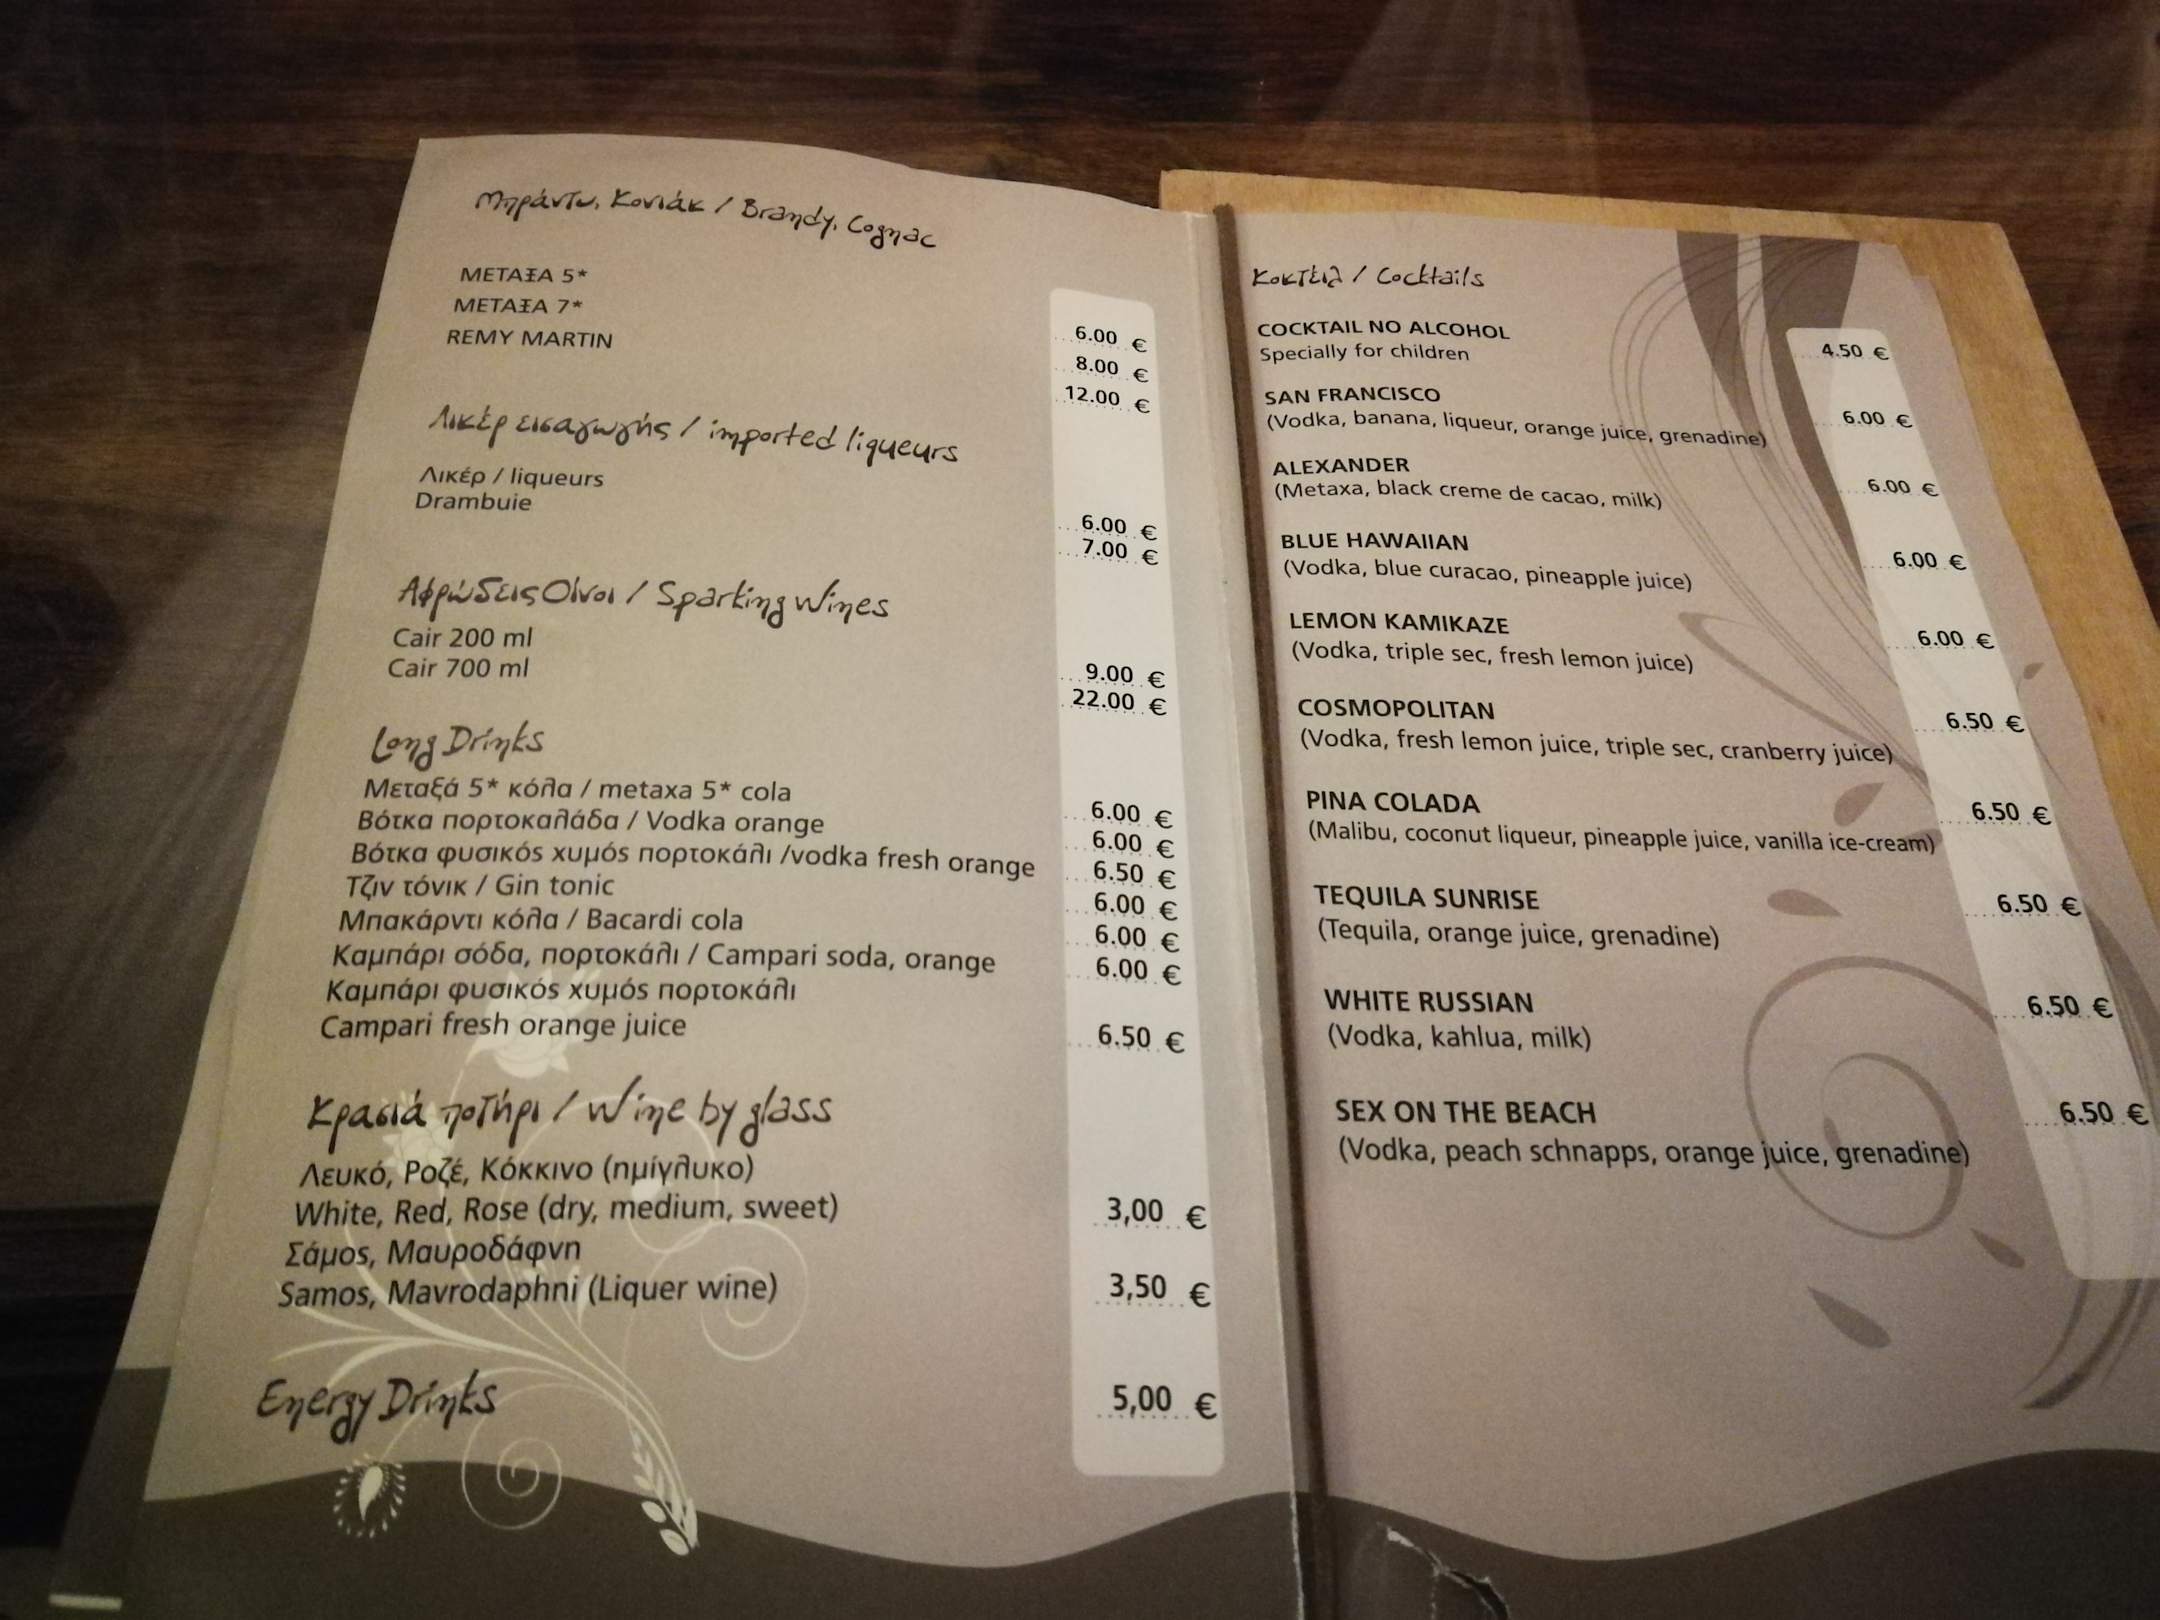 Μπράντυ, Κονιάκ / Brandy, Cognac
ΜΕΤΑΞΑ 5* 6.00 €
ΜΕΤΑΞΑ 7* 8.00 €
REMY MARTIN 12.00 €
Λικέρ εισαγωγής / imported liqueurs
Λικέρ / liqueurs 6.00 €
Drambuie 7.00 €
Αφρώδεις Οίνοι / Sparking Wines
Cair 200 ml 9.00 €
Cair 700 ml 22.00 €
Long Drinks
Μεταξά 5* κόλα / metaxa 5* cola 6.00 €
Βότκα πορτοκαλάδα / Vodka orange 6.00 €
Βότκα φυσικός χυμός πορτοκάλι /vodka fresh orange 6.50 €
Τζιν τόνικ / Gin tonic 6.00 €
Μπακάρντι κόλα / Bacardi cola 6.00 €
Καμπάρι σόδα, πορτοκάλι / Campari soda, orange 6.00 €
Καμπάρι φυσικός χυμός πορτοκάλι
Campari fresh orange juice 6.50 €
Κρασιά ποτήρι / Wine by glass
Λευκό, Ροζέ, Κόκκινο (ημίγλυκο)
White, Red, Rose (dry, medium, sweet) 3,00 €
Σάμος, Μαυροδάφνη
Samos, Mavrodaphni (Liquer wine) 3,50 €
Energy Drinks 5,00 €
Κοκτέιλ / Cocktails
COCKTAIL NO ALCOHOL 4.50 €
Specially for children
SAN FRANCISCO 6.00 €
(Vodka, banana, liqueur, orange juice, grenadine)
ALEXANDER 6.00 €
(Metaxa, black creme de cacao, milk)
BLUE HAWAIIAN 6.00 €
(Vodka, blue curacao, pineapple juice)
LEMON KAMIKAZE 6.00 €
(Vodka, triple sec, fresh lemon juice)
COSMOPOLITAN 6.50 €
(Vodka, fresh lemon juice, triple sec, cranberry juice)
PINA COLADA 6.50 €
(Malibu, coconut liqueur, pineapple juice, vanilla ice-cream)
TEQUILA SUNRISE 6.50 €
(Tequila, orange juice, grenadine)
WHITE RUSSIAN 6.50 €
(Vodka, kahlua, milk)
SEX ON THE BEACH 6.50 €
(Vodka, peach schnapps, orange juice, grenadine)